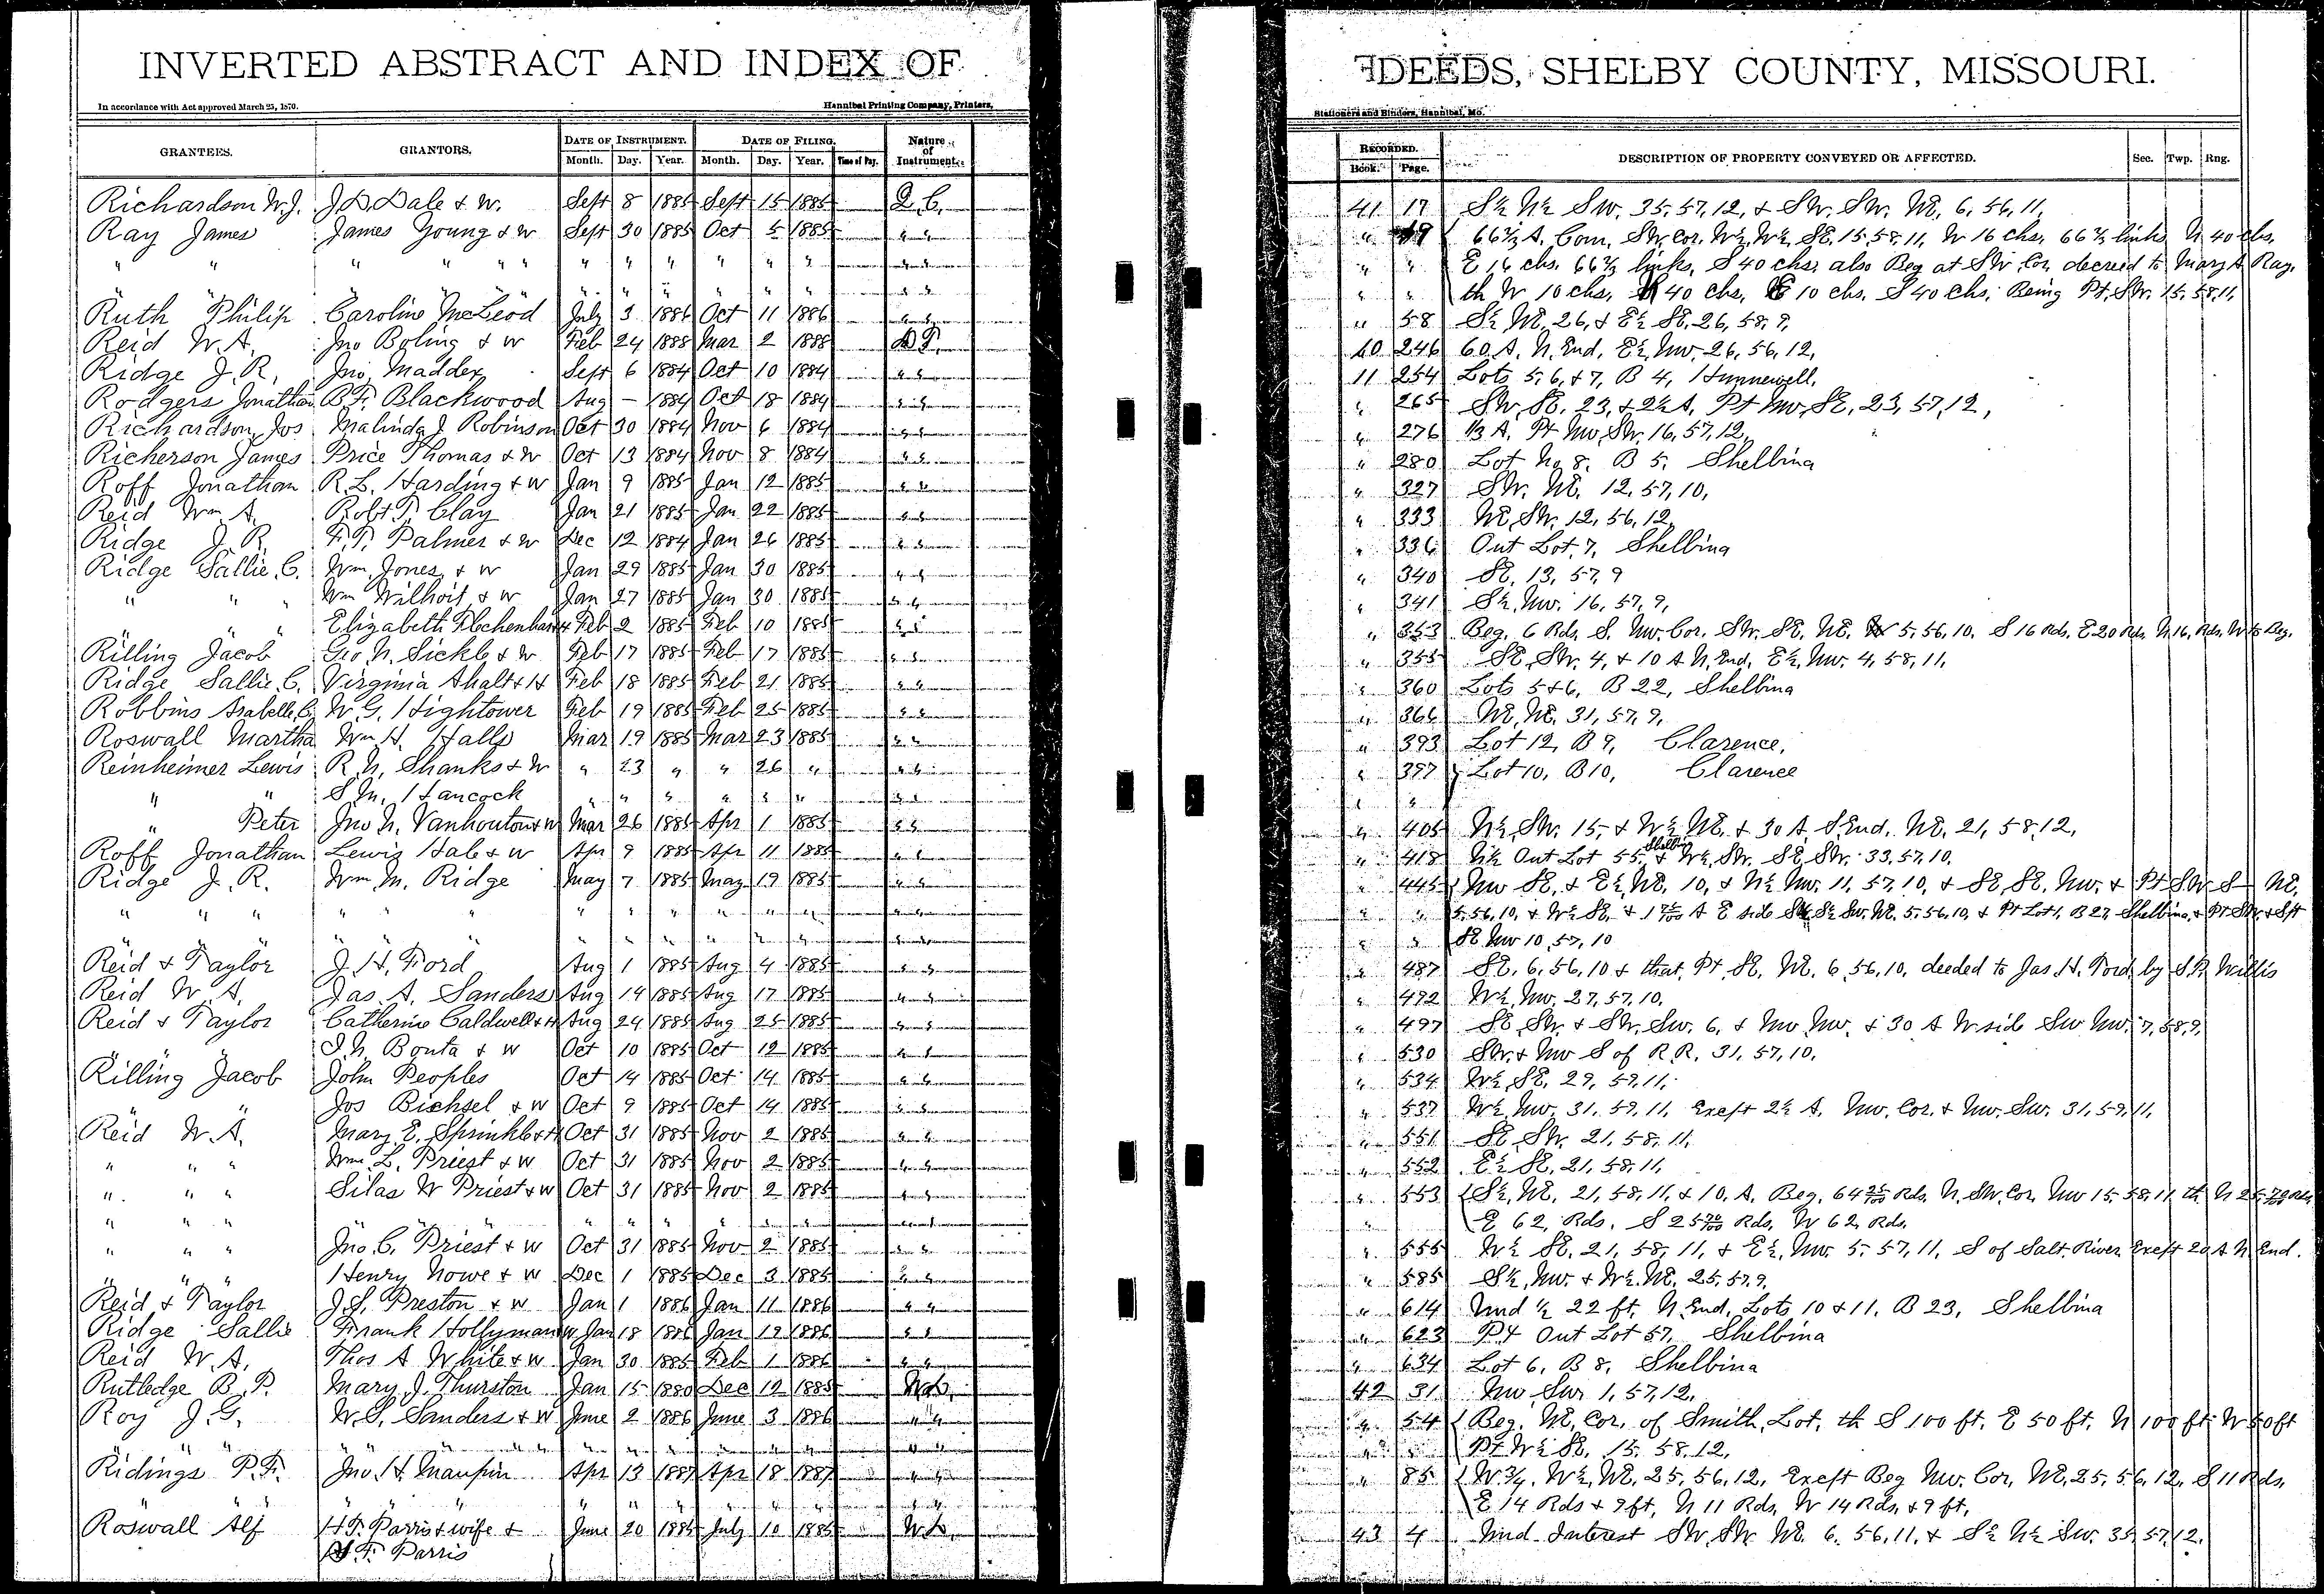 INVERTED ABSTRACT AND INDEX OF DEEDS, SHELBY COUNTY, MISSOURI.
In accordance with Act approved March 25, 1870. Hannibal Printing Company, Printers, Stationers and Binders, Hannibal, Mo.
GRANTEES. GRANTORS. DATE OF INSTRUMENT. DATE OF FILING. Nature of Instrument. RECORDED. DESCRIPTION OF PROPERTY CONVEYED OR AFFECTED. Sec. Twp. Rng.
Month. Day. Year. Month. Day. Year. Time of Day. Book. Page.
Richardson W.J. J.D. Dale & W. Sept 8 1885 Sept 15 1885 Q.C. 41 17 S½ N½ SW. 35, 57, 12, & SW. SW. NE, 6, 56, 11,
Ray James James Young & W Sept 30 1885 Oct 5 1885 " " " 19 66⅔ A. Com. SW. cor. W½ W½ SE. 15, 58, 11, W 16 chs. 66⅔ links N 40 chs.
" " " " " " " " " " " " " " " " " E 16 chs. 66⅔ links, S 40 chs, also Beg at SW Cor, decreed to Mary A Ray.
" " " " " " " " " " " " " th W 10 chs, N 40 chs, E 10 chs. S 40 chs, Being Pt. SW. 15, 58, 11,
Ruth Philip Caroline McLeod July 3 1886 Oct 11 1886 " " " 58 S½ NE 26, & E½ SE, 26, 58, 9,
Reid W.A. Jno Boling & W Feb 24 1888 Mar 2 1888 D T. 10 246 60 A. N. End, E½ NW. 26, 56, 12,
Ridge J.R. Jno, Maddex Sept 6 1884 Oct 10 1884 " " 11 254 Lots 5, 6, & 7, B 4, Hunnewell,
Rodgers Jonathan B.F. Blackwood Aug — 1884 Oct 18 1884 " " " 265 SW, SE. 23, & 2½ A, Pt NW, SE, 23, 57, 12,
Richardson, Jos Malinda J Robinson Oct 30 1884 Nov 6 1884 " " " 276 1/3 A, Pt NW, SW. 16, 57, 12,
Richerson James Price Thomas & W Oct 13 1884 Nov 8 1884 " " " 280 Lot No 8, B 5, Shelbina
Roff Jonathan R.L. Harding & W Jan 9 1885 Jan 12 1885 " " " 327 SW. NE. 12, 57, 10,
Reid Wm A. Robt P. Clay Jan 21 1885 Jan 22 1885 " " " 333 NE, SW. 12, 56, 12,
Ridge J R F.P. Palmer & W Dec 12 1884 Jan 26 1885 " " " 336 Out Lot, 7, Shelbina
Ridge Sallie, C. Wm, Jones, & W Jan 29 1885 Jan 30 1885 " " " 340 SE. 13, 57, 9
" " " Wm Wilhoit & W Jan 27 1885 Jan 30 1885 " " " 341 S½ NW. 16, 57, 9,
" " " Elizabeth Feb 2 1885 Feb 10 1885 " " " 353 Beg. 6 Rds, S. NW. Cor. SW. SE, NE. 5, 56, 10. S 16 Rds, E 20 Rds. N 16, Rds. W to Beg.
Rilling Jacob Geo N. Sickle & W Feb 17 1885 Feb 17 1885 " " " 355 SE, SW. 4, & 10 A N, End, E½ NW. 4, 58, 11,
Ridge Sallie, C. Virginia Shalt & H Feb 18 1885 Feb 21 1885 " " " 360 Lots 5 & 6, B 22, Shelbina
Robbins Arabelle, C. W.G. Hightower Feb 19 1885 Feb 25 1885 " " " 366 NE, NE. 31, 57, 9,
Roswall Martha Wm H. Halls Mar 19 1885 Mar 23 1885 " " " 393 Lot 12, B 9, Clarence,
Reinheimer Lewis R.N. Shanks & W " 23 " " 26 " " " " 397 Lot 10, B 10, Clarence
" " S.M. Hancock " " " " " " " " " "
" Peter Jno N. Vanhouton & W Mar 26 1885 Apr 1 1885 " " " 405 N½ SW. 15, & W½ NE. & 30 A S. End, NE. 21, 58, 12,
Roff Jonathan Lewis Hale & W Apr 9 1885 Apr 11 1885 " " " 418 N½ Out Lot 55, Shelbina & W½ SW. SE, SW. 33, 57, 10,
Ridge J.R. Wm M. Ridge May 7 1885 May 19 1885 " " " 445 NW SE, & E½ NE, 10, & N½ NW. 11, 57, 10, & SE, SE, NW. & Pt SW S— NE,
" " " " " " " " " " " " " " " " 5, 56, 10, & W½ SE. & 1 75/100 A E side S½ SW. NE. 5, 56, 10, & Pt Lot 1, B 27, Shelbina, & Pt SW. & S pt
" " " " " " " " " " SE NW 10, 57, 10
Reid & Taylor J.H. Ford Aug 1 1885 Aug 4 1885 " " " 487 SE. 6, 56, 10 & that, Pt SE, NE. 6, 56, 10, deeded to Jas. H. Ford, by S.P. Willis
Reid W.A. Jas A. Sanders Aug 14 1885 Aug 17 1885 " " " 492 W½ NW. 27, 57, 10,
Reid & Taylor Catherine Caldwell & H Aug 24 1885 Aug 25 1885 " " " 497 SE, SW. & SW. SW. 6, & NW NW. & 30 A W side SW NW. 7, 58, 9,
" " J.N. Bonta & W Oct 10 1885 Oct 12 1885 " " " 530 SW. & NW S of R.R. 31, 57, 10,
Rilling Jacob John Peoples Oct 14 1885 Oct 14 1885 " " " 534 W½ SE, 29, 59, 11,
" " Jos Bichsel & W Oct 9 1885 Oct 14 1885 " " " 537 W½ NW. 31, 59, 11, Exept 2½ A, NW. Cor. & NW. SW. 31, 59, 11,
Reid W.A. Mary E. Sprinkle & H Oct 31 1885 Nov 2 1885 " " " 551 SE SW. 21, 58, 11,
" " " Wm L. Priest & W Oct 31 1885 Nov 2 1885 " " " 552 E½ SE, 21, 58, 11,
" " " Silas W Priest & W Oct 31 1885 Nov 2 1885 " " " 553 S½ NE. 21, 58, 11, & 10, A, Beg. 64 25/100 Rds. N. SW. Cor. NW 15, 58, 11, th N 25 79/100 Rds
" " " " " " " " " " " " " " E 62 Rds. S 25 79/100 Rds, W 62 Rds.
" " " Jno. C. Priest & W Oct 31 1885 Nov 2 1885 " " " 555 W½ SE. 21, 58, 11, & E½ NW. 5, 57, 11, S of Salt River Exept 20 A N End.
" " " Henry Nowe & W Dec 1 1885 Dec 3 1885 " " " 585 S½ NW. & W½ NE. 25, 57, 9,
Reid & Taylor J.S. Preston & W Jan 1 1886 Jan 11 1886 " " " 614 Und ½ 22 ft, N. End, Lots 10 & 11, B 23, Shelbina
Ridge Sallie Frank Hollyman W Jan 18 1886 Jan 19 1886 " " " 623 Pt Out Lot 57, Shelbina
Reid W.A. Thos A White & W Jan 30 1885 Feb 1 1886 " " " 634 Lot 6, B 8, Shelbina
Rutledge B.P. Mary J. Thurston Jan 15 1880 Dec 12 1885 W.D. 42 31 NW SW 1, 57, 12,
Roy J.G. W.S. Sanders & W June 2 1886 June 3 1886 " " " 54 Beg. NE, Cor, of Smith, Lot, th S 100 ft, E 50 ft, N 100 ft W 50 ft
" " " " " " " " " " " " " " " Pt W½ SE, 15, 58, 12,
Ridings P.F. Jno. H. Maupin Apr 13 1887 Apr 18 1887 " " " 85 W ¾, W½ NE, 25, 56, 12, Exept Beg NW. Cor, NE, 25, 56, 12, S 11 Rds,
" " " " " " " " " " " " E 14 Rds & 9 ft, N 11 Rds, W 14 Rds, & 9 ft,
Roswall Alf H.F. Parris & wife & June 20 1885 July 10 1885 W.D. 43 4 Und Interest SW, SW NE 6, 56, 11, & S½ N½ SW. 35, 57, 12,
F. Parris